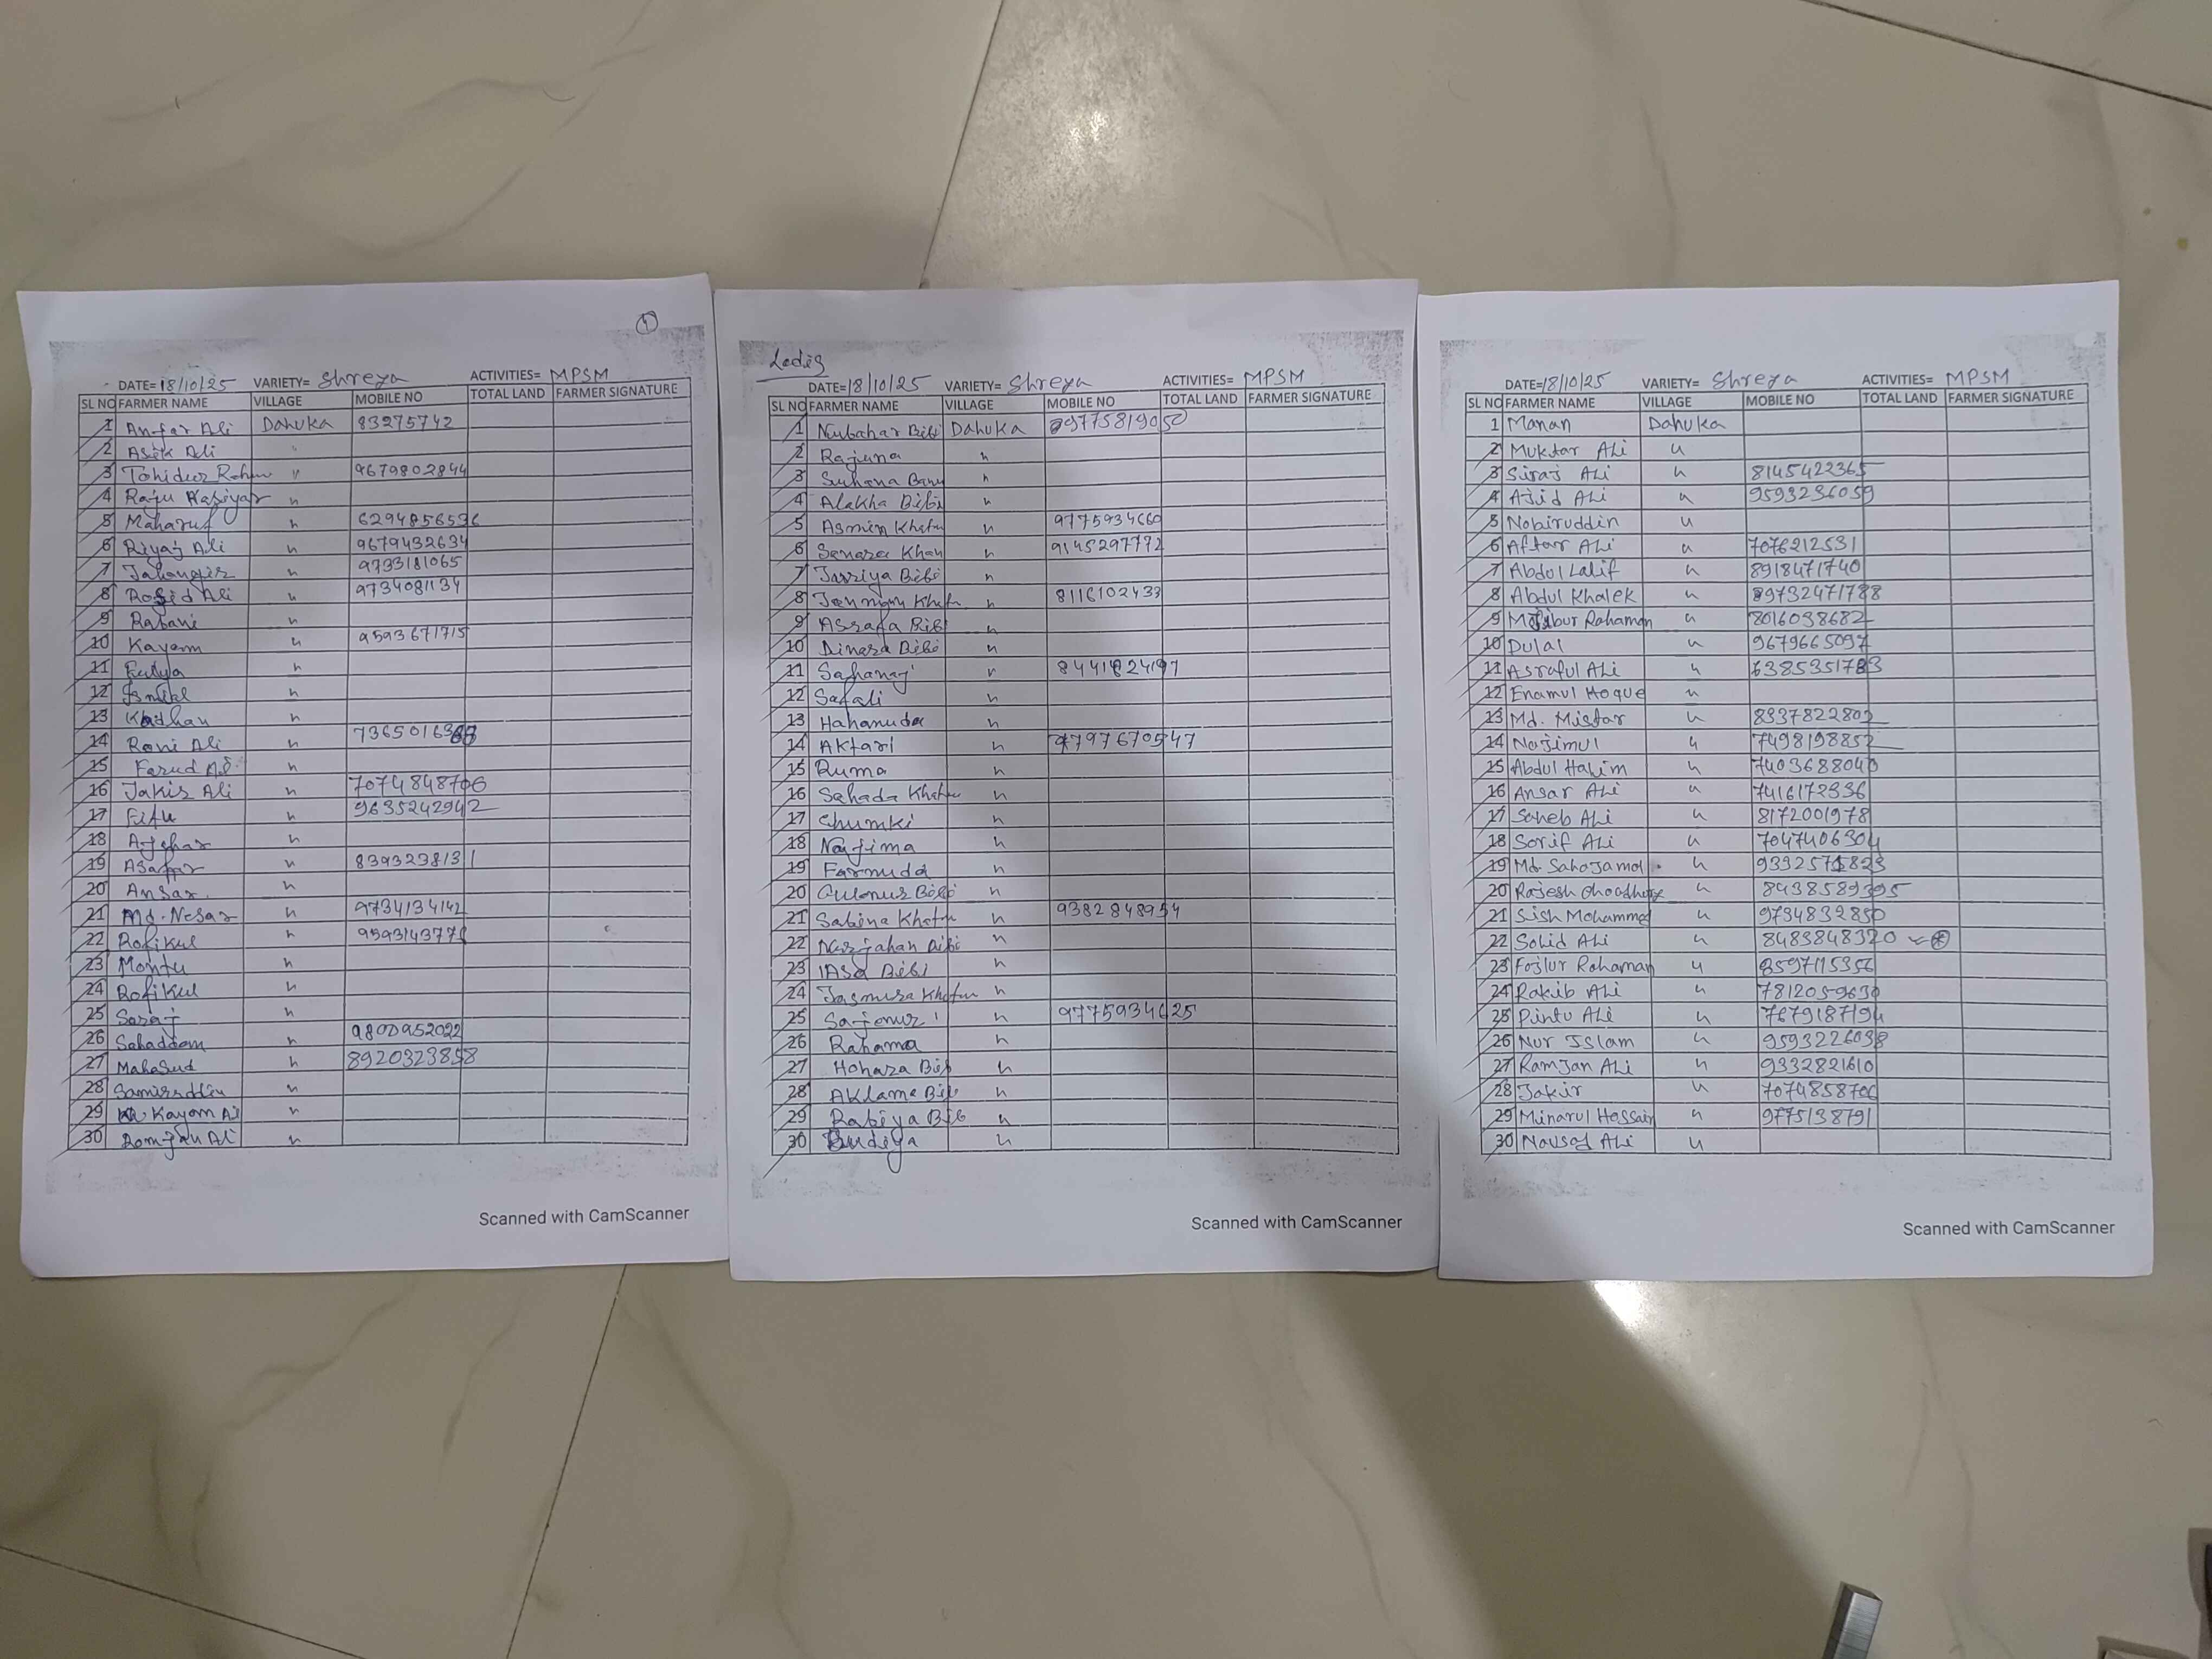 1
DATE= 18/10/25 VARIETY= Shreya ACTIVITIES= MPSM
SL NO FARMER NAME VILLAGE MOBILE NO TOTAL LAND FARMER SIGNATURE
1 Ansar Ali Dahuka 83275742
2 Asik Ali
3 Tohidur Rohm " 9679802844
4 Raju Kasiyar "
5 Maharuf " 6294856536
6 Riyaj Ali " 9679432634
7 Jahangir " 9733181065
8 Rosid Ali " 9734081134
9 Rabani "
10 Kayam " 9593671715
11 "
12 Ismail "
13 Kadhan "
14 Roni Ali " 7365016368
15 Farud Ali "
16 Jakir Ali " 7074848706
17 Fitu " 9635242942
18 "
19 " 8393238131
20 Ansar. "
21 Md. Nesar " 9734134142
22 Rofikul " 959314377
23 Montu "
24 Rofikul "
25 Soraj "
26 Sahaddam " 9800952022
27 Mahasud " 8920323858
28 Samiruddin "
29 Kayam Al "
30 Romjan Al "
Scanned with CamScanner
Ladis
DATE= 18/10/25 VARIETY= Shreya ACTIVITIES= MPSM
SL NO FARMER NAME VILLAGE MOBILE NO TOTAL LAND FARMER SIGNATURE
1 Nurbahar Bibi Dahuka 9775819050
2 Rajuna "
3 Suhana Banu "
4 Alakha Bibi
5 Asmin Khatu " 9775934660
6 Sanara Khan " 9145297772
7 Jarriya Bibi "
8 " 8116102433
9 Asrafa Bibi "
10 Dinara Bibi "
11 Sahanaj " 8441824197
12 Safali "
13 Hahanuda "
14 Aktari " 9797670547
15 Ruma "
16 Sahada Khatu "
17 Chumki "
18 Najima "
19 Farmuda "
20 Gulenur Bibi "
21 Sabina Khatu " 9382848954
22 Nurjahan Bibi "
23 IASA Bibi "
24 Jasmira Khatun "
25 Sajenur " 9775934625
26 Rahama "
27 Hohara Bib "
28 Aklama Bib "
29 Rabiya Bib "
30 Budiya "
Scanned with CamScanner
DATE= 18/10/25 VARIETY= Shreya ACTIVITIES= MPSM
SL NO FARMER NAME VILLAGE MOBILE NO TOTAL LAND FARMER SIGNATURE
1 Manan Dahuka
2 Muktar Ali "
3 Siraj Ali " 8145422365
4 Ajid Ali " 9593236059
5 Nobiruddin "
6 Aftar Ali " 7076212531
7 Abdul Latif " 8918471740
8 Abdul Khalek " 89732471788
9 Mojibur Rahaman " 8016038682
10 Dulal " 9679665097
11 Asraful Ali " 6385351783
12 Enamul Hoque "
13 Md. Mistar " 8337822802
14 Najimul " 7498198852
15 Abdul Hakim " 7403688040
16 Ansar Ali " 7416172336
17 Saheb Ali " 8172001978
18 Sorif Ali " 7047406304
19 Md. Sahajamal " 9332571823
20 Rajesh Choadhury " 8438589395
21 Sish Mohammed " 9734832850
22 Sohid Ali " 8483848320
23 Fojlur Rahaman " 8597115356
24 Rakib Ali " 7812059630
25 Pintu Ali " 7679187194
26 Nur Islam " 9593226038
27 Ramjan Ali " 9332821610
28 Jakir " 7074858706
29 Minarul Hossain " 9775138791
30 Nousaf Ali "
Scanned with CamScanner